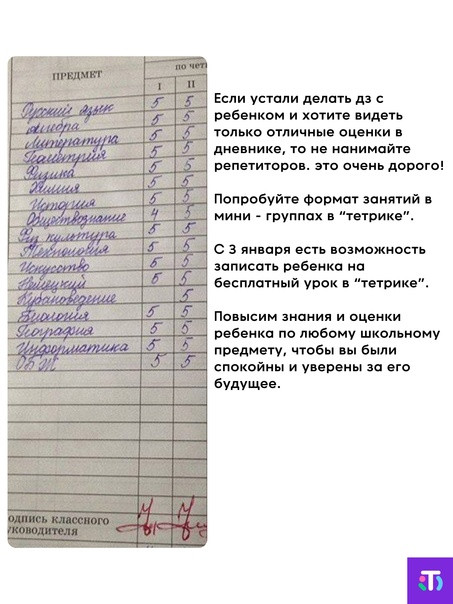 ПРЕДМЕТ
по чет
I II
Русский язык 5 5
Алгебра 5 5
Литература 5 5
Геометрия 5 5
Физика 5 5
Химия 5 5
История 5 5
Обществознание 4 5
Физ культура 5 5
Технология 5 5
Искусство 5 5
Немецкий 5 5
Кубановедение 5
Биология 5 5
География 5 5
Информатика 5 5
ОБЖ 5 5
одпись классного
уководителя
Если устали делать дз с
ребенком и хотите видеть
только отличные оценки в
дневнике, то не нанимайте
репетиторов. это очень дорого!
Попробуйте формат занятий в
мини - группах в “тетрике”.
С 3 января есть возможность
записать ребенка на
бесплатный урок в “тетрике”.
Повысим знания и оценки
ребенка по любому школьному
предмету, чтобы вы были
спокойны и уверены за его
будущее.